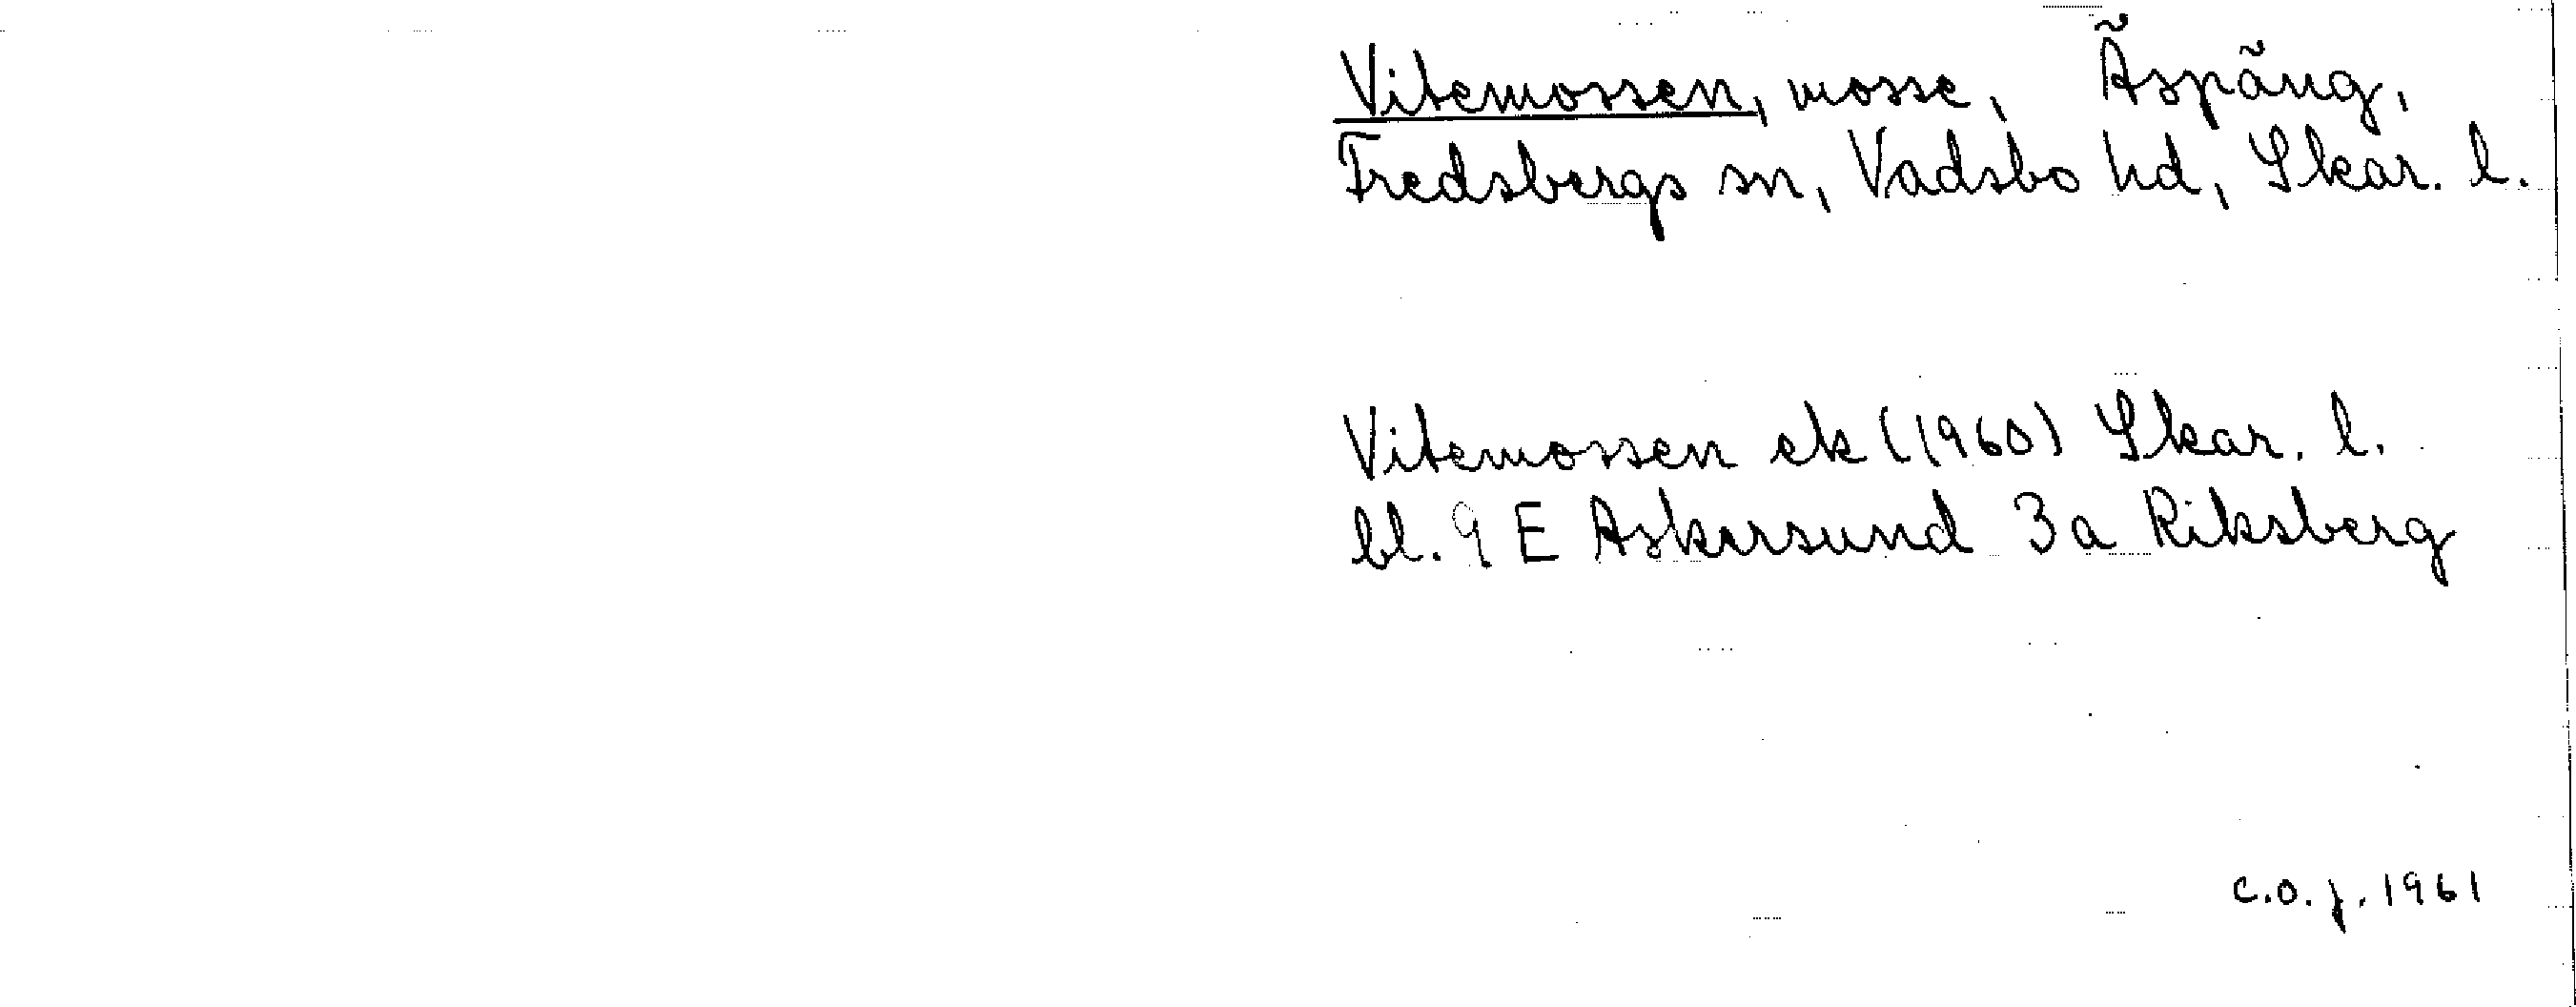 Vitemossen, mosse, Äspäng,
Fredsbergs sn, Vadsbo hd, Skar. l.
Vitemossen ek (1960) Skar. l.
bl. 9 E Askersund 3a Riksberg
C.O.f. 1961